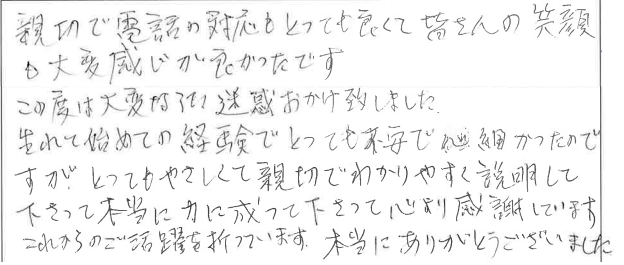 親切で電話の対応もとっても良くて皆さんの笑顔
も大変感じが良かったです
この度は大変なご迷惑おかけ致しました
生れて始めての経験でとっても不安で心細かったので
すが、とってもやさしくて親切でわかりやすく説明して
下さって本当に力に成って下さって心より感謝しています
これからのご活躍を折っています。本当にありがとうございました